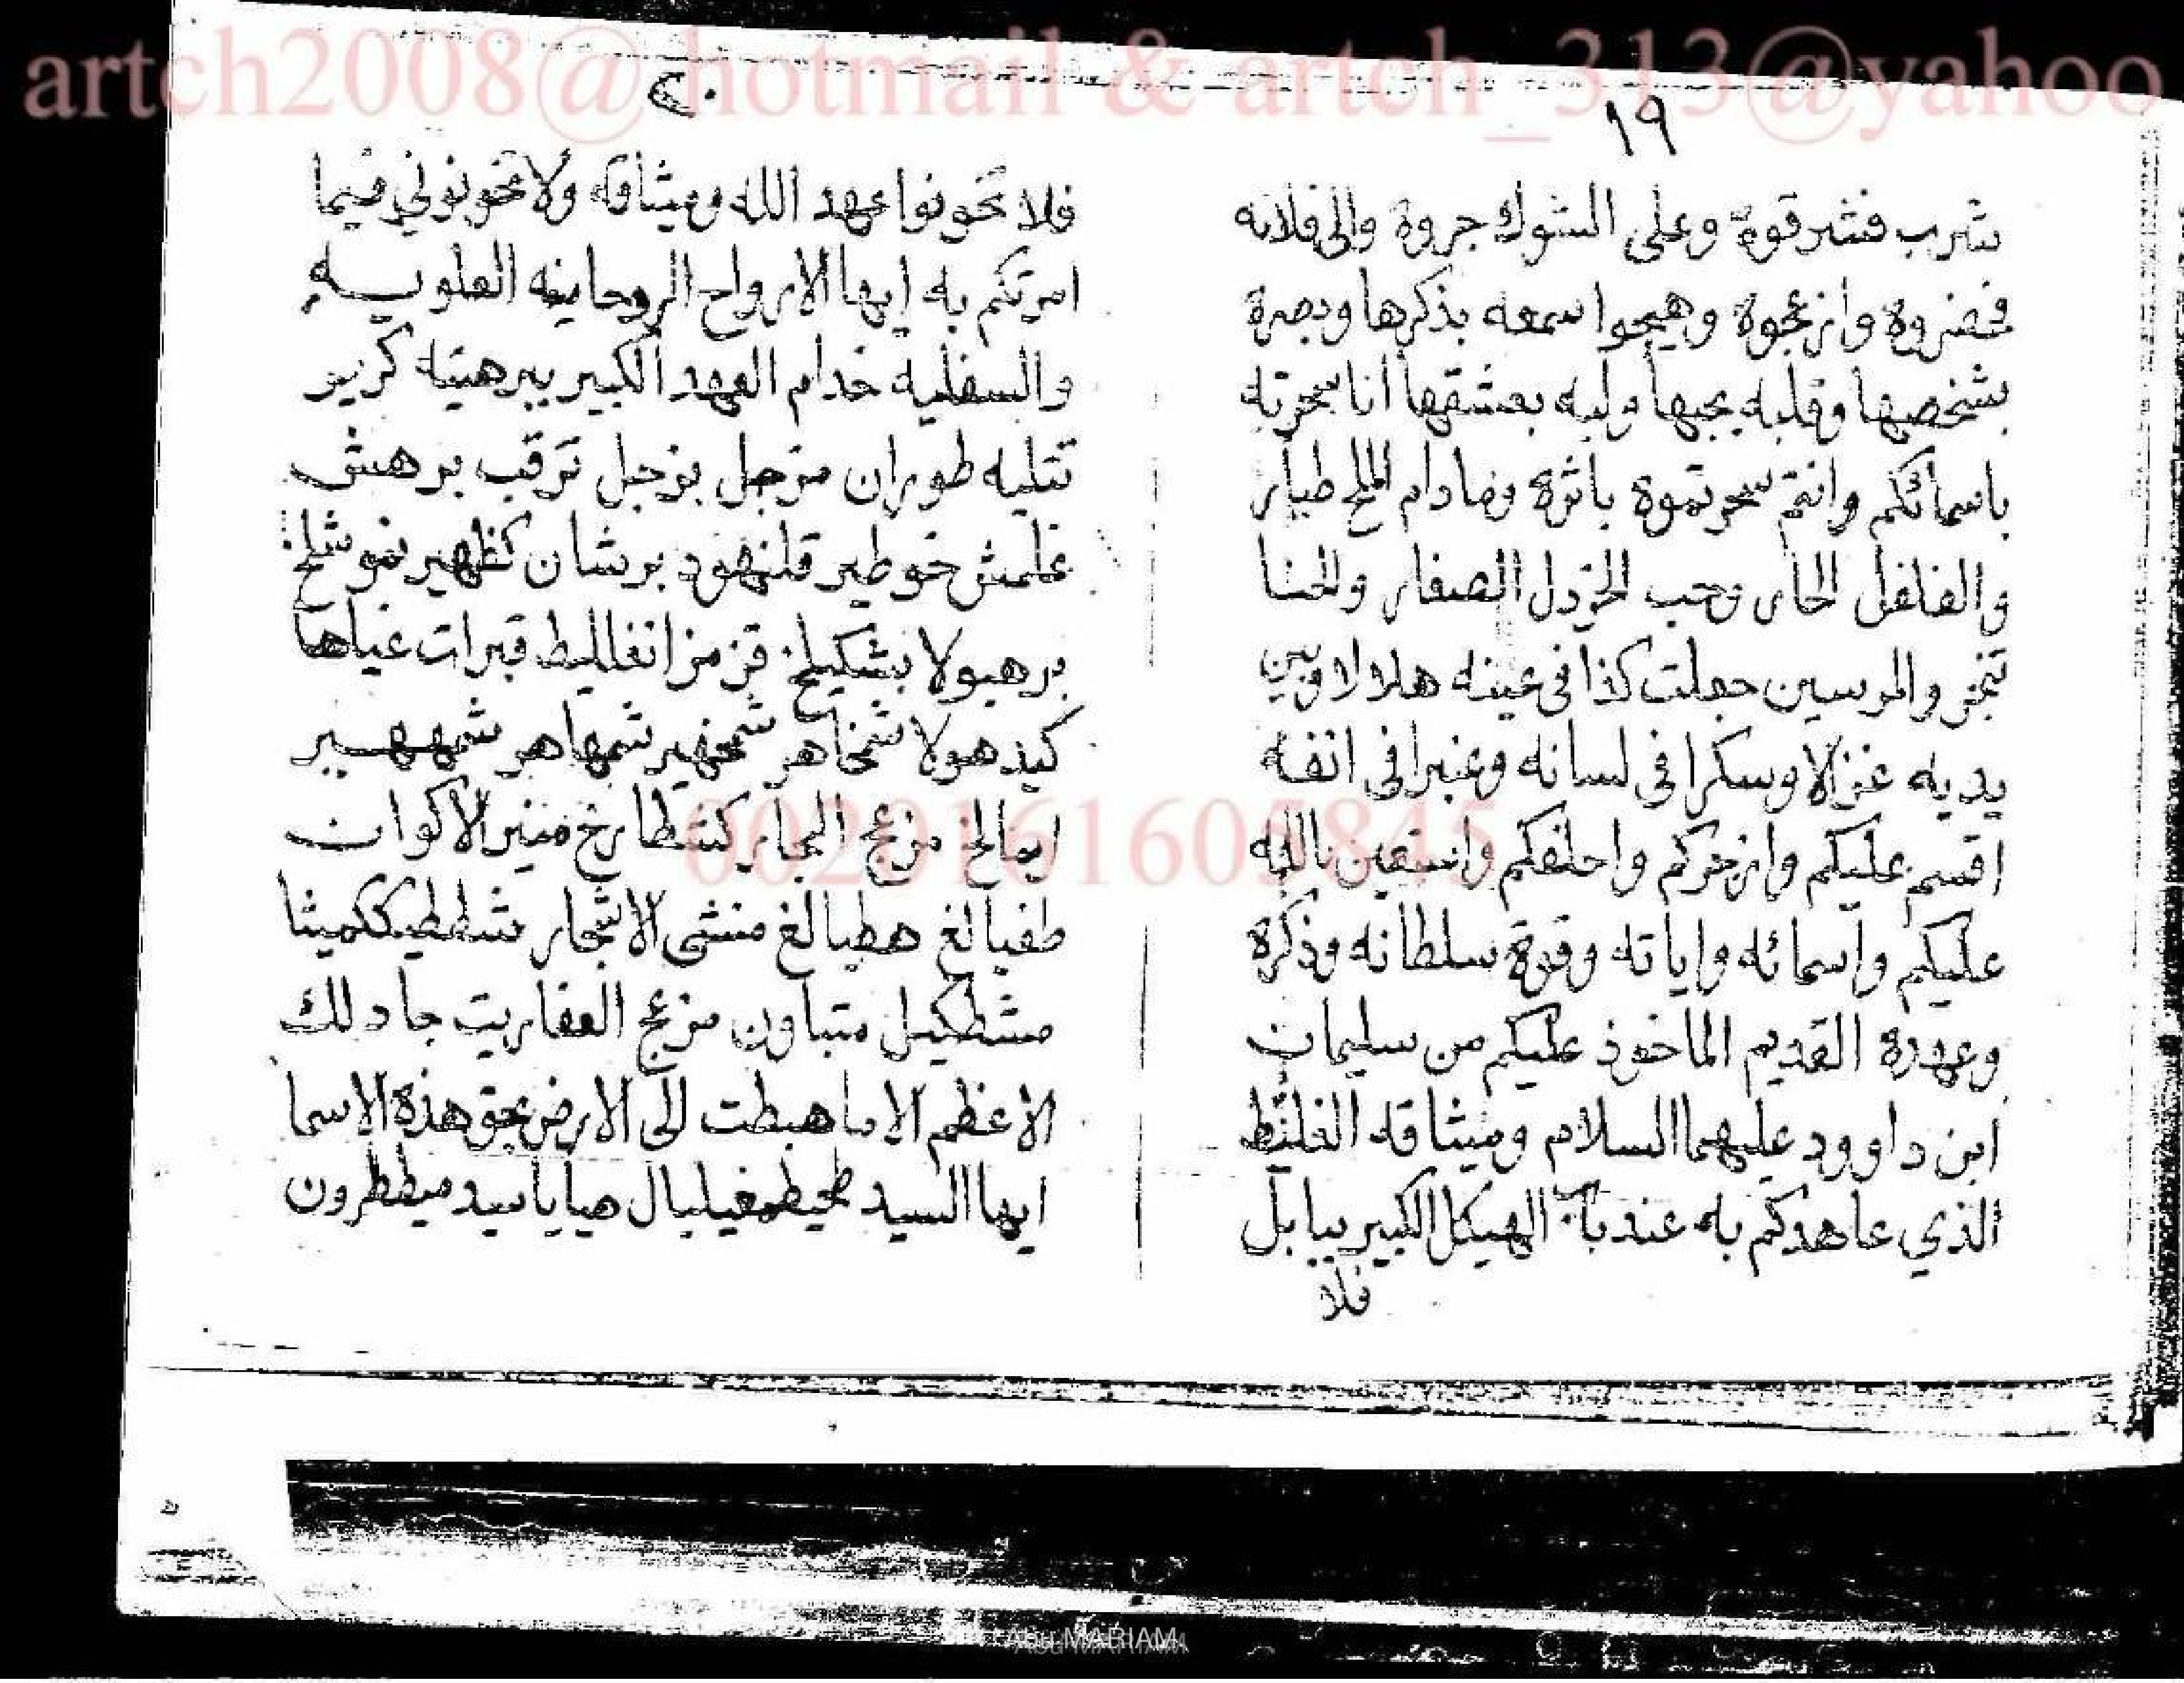 artch2008@hotmail & artch_313@yahoo
١٩
شرب فشرقوة وعلى الشوك جروة والى فلانه
فحضروة وانزعجوة وهيجوا سمعه بذكرها وبصرة
بشخصها وقلبه بحبها ولبه بعشقها أنا سحرته
باسمائكم وانتم سحرتموة باثرة ومادام الملح طيار
والفلفل الحار وحب الخردل الصفار والحنا
تنجز والمرسين جعلت كذا فى عينه هلالا وبين
يديه غزالا وسكرا فى لسانه وعنبرا فى انفه
اقسم عليكم وازجركم واحلفكم واستعين بالله
عليكم وأسمائه واياته وقوة سلطانه وذكرة
وعهدة القديم الماخوذ عليكم من سليمان
ابن داوود عليهما السلام وميثاقه الغليظ
الذي عاهدكم به عند باب الهيكل الكبير ببابل
فلا
٢٠
فلا تخونوا عهد الله وميثاقه ولا تخونوني فيما
امرتكم به إيها الارواح الروحانيه العلويه
والسفليه خدام العهد الكبير ببرهتيه كرير
تتليه طوران مزجل بزجل ترقب برهش
غلمش خوطير قلنهود برشان كظهير نموشلخ
برهيولا بشكيلخ قز مز انغلليط قبرات غياها
كيدهولا شمخاهر شمخهير شمهاهر شمههير
ايمالخ مزعج البحار كشطارخ منير الاكوان
طفيالغ هطيالغ منشى الاشجار شلطيككميثا
مشطكيل متباون مزعج العفاريت جاد لك
الاعظم الا ما هبطت الى الارض بحق هذة الاسما
ايها السيد طحيطمغيليال هيا يا سيد ميططرون
00201161605845
Abu MARIAM